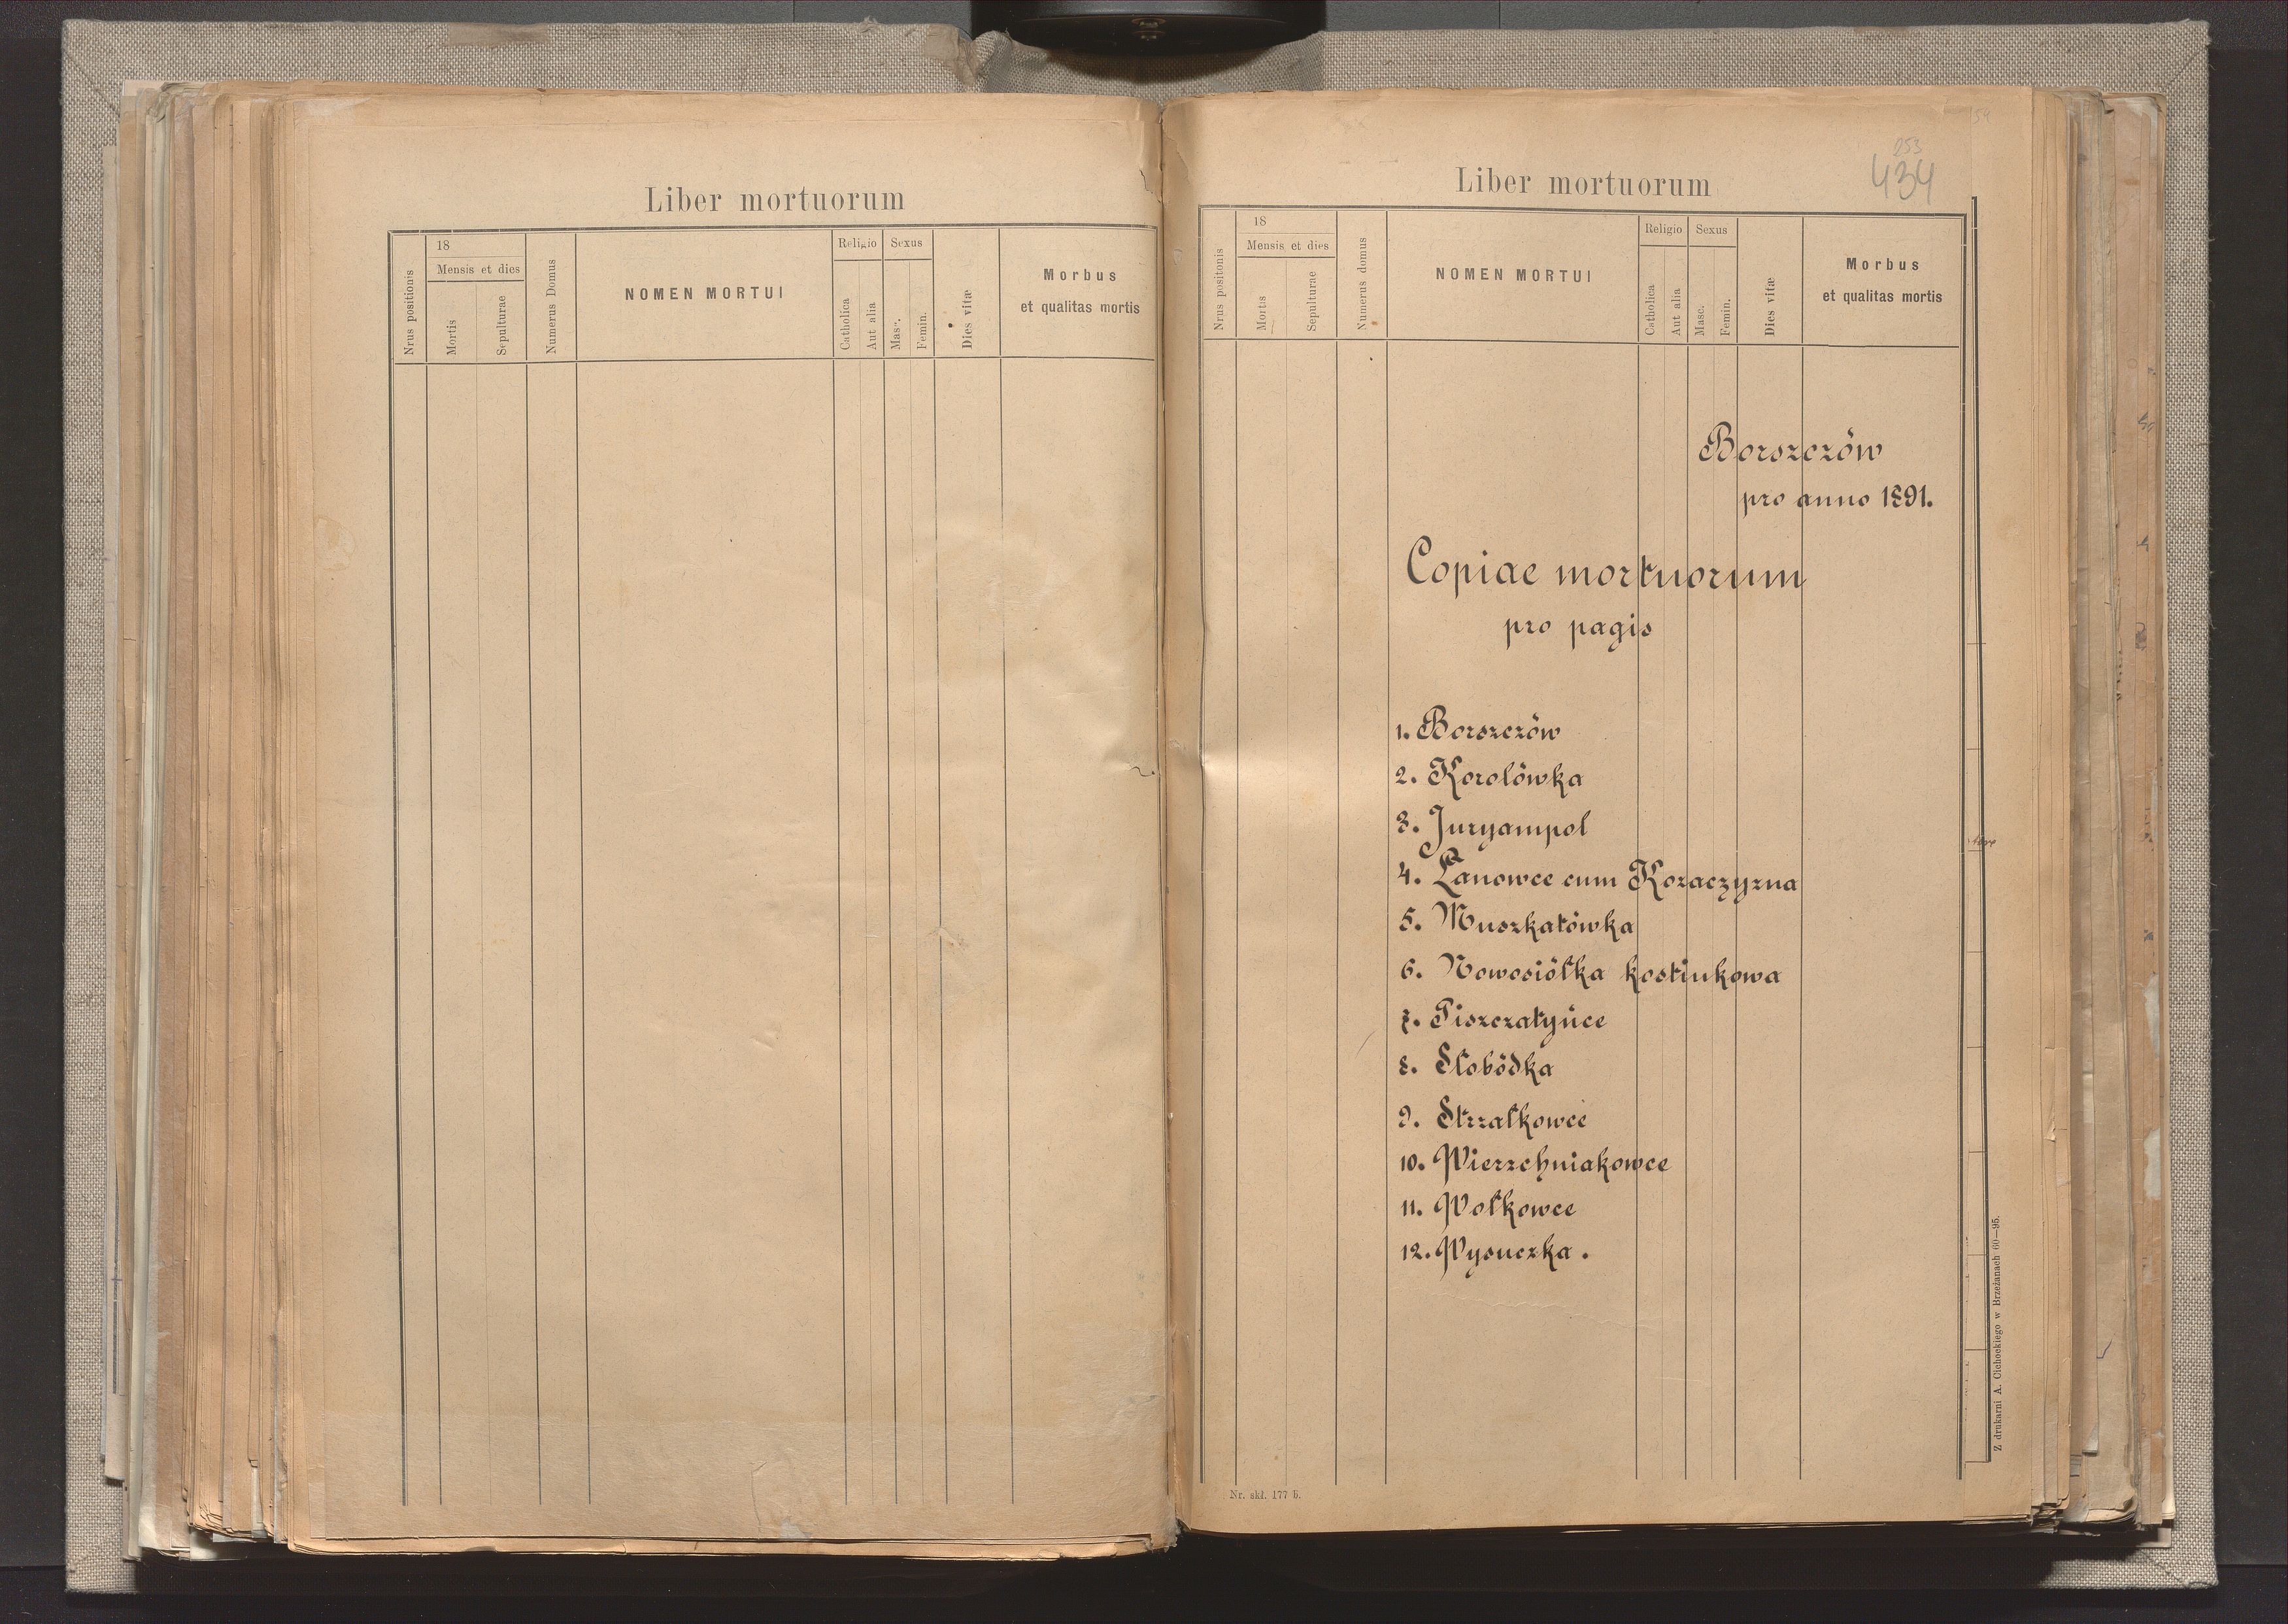 Liber mortuorum
Nrus positionis
18
Mensis et dies
Mortis
Sepulturae
Numerus Domus
NOMEN MORTUI
Religio
Catholica
Aut alia
Sexus
Masc.
Femin.
Dies vitæ
Morbus
et qualitas mortis
253
434
Liber mortuorum
Nrus positonis
18
Mensis et dies
Mortis
Sepulturae
Numerus domus
NOMEN MORTUI
Religio
Catholica
Aut alia
Sexus
Masc.
Femin.
Dies vitæ
Morbus
et qualitas mortis
Borszczów
pro anno 1891.
Copiae mortuorum
pro pagis
1. Borszczów
2. Korolówka
3. Juryampol
4. Łanowce cum Kozaczyzna
5. Muszkatówka
6. Nowosiółka kostiukowa
7. Piszczatyńce
8. Słobódka
9. Strzałkowce
10. Wierzchniakowce
11. Wołkowce
12. Wysuczka.
Nr. skł. 177 b.
Z drukarni A. Cichockiego w Brzeżanach 60—95.